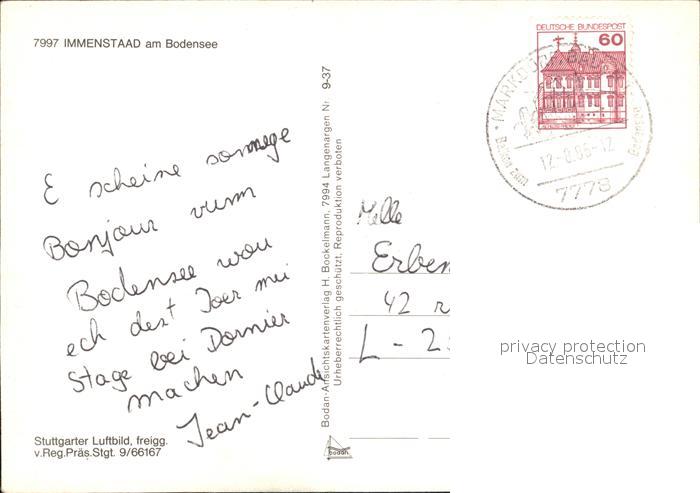 7997 IMMENSTAAD am Bodensee
E scheine sonnege
Bonjour vum
Bodensee wou
ech dest Joer mei
Stage bei Dornier
machen
Jean-Claude
Stuttgarter Luftbild, freigg.
v.Reg.Präs.Stgt. 9/66167
Bodan-Ansichtskartenverlag H. Bockelmann, 7994 Langenargen Nr 9-37
Urheberrechtlich geschützt, Reproduktion verboten
bodan
DEUTSCHE BUNDESPOST
60
MARKDORF BADEN
7778
Bodensee
Melle
Erben
42 r
L - 2
privacy protection
Datenschutz